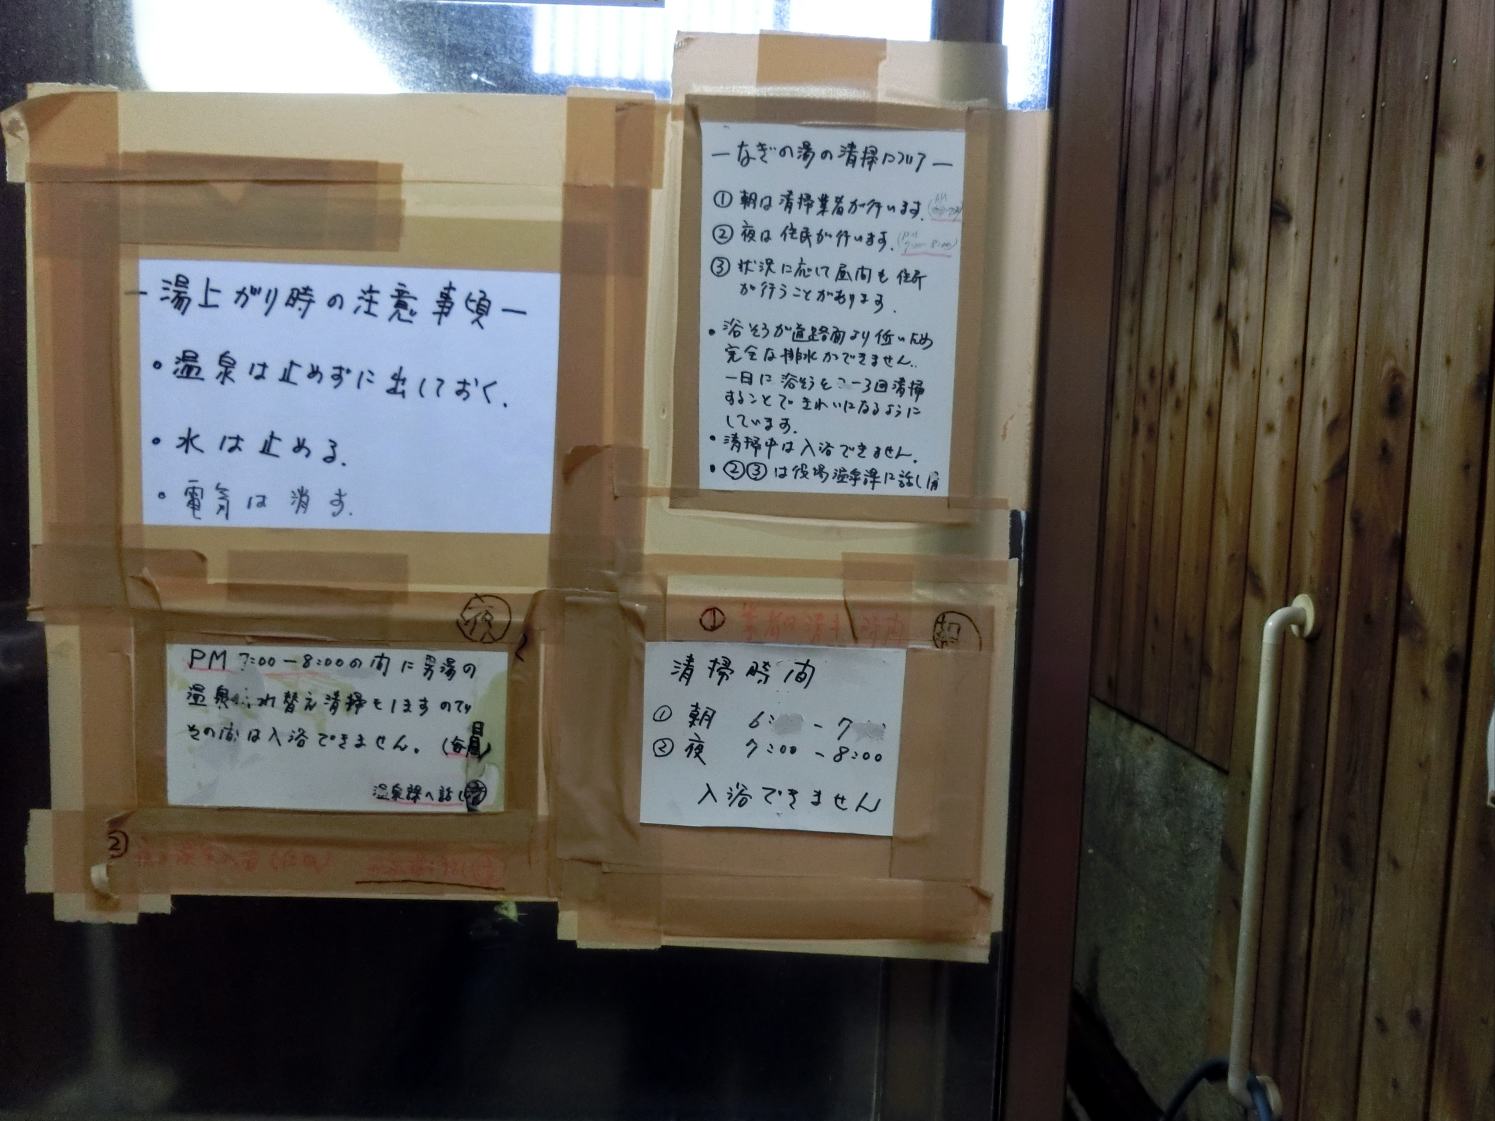 －湯上がり時の注意事項－
・温泉は止めずに出しておく.
・水は止める.
・電気は消す.
－なぎの湯の清掃について－
① 朝は清掃業者が行います.
② 夜は住民が行います.
③ 状況に応じて昼間も住民
が行うことがあります.
・浴そうが道路面より低いため
完全な排水ができません.
一日に浴そうを2～3回清掃
することできれいになるように
しています.
・清掃中は入浴できません.
・②③は役場温泉課に話し済
夜
PM 7:00－8:00の間に男湯の
温泉入れ替え清掃をしますので
その間は入浴できません。(毎日)
温泉課へ話し済
②
① 朝
清掃時間
① 朝 6: － 7
② 夜 7:00－8:00
入浴できません